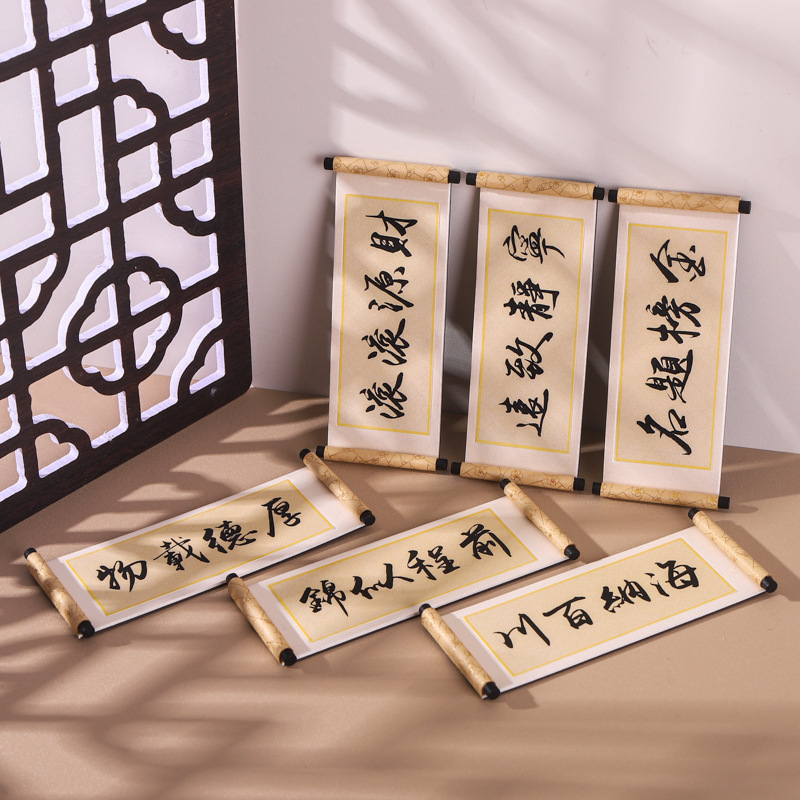 財源滾滾
寧靜致遠
金榜題名
厚德載物
前程似錦
海納百川